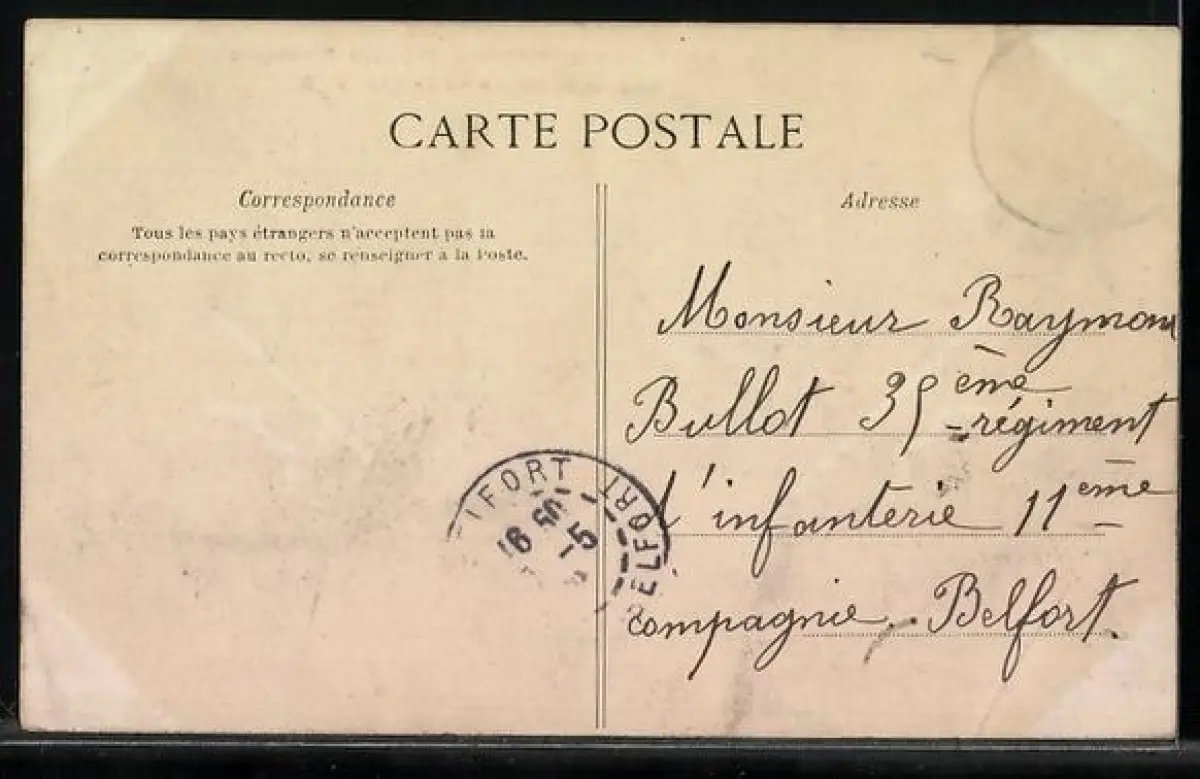 CARTE POSTALE
Correspondance
Tous les pays étrangers n'acceptent pas la
correspondance au recto, se renseigner à la Poste.
Adresse
Monsieur Raymon
Bullot 35ème régiment
d'infanterie 11ème
Compagnie. Belfort.
LFORT
ELFORT